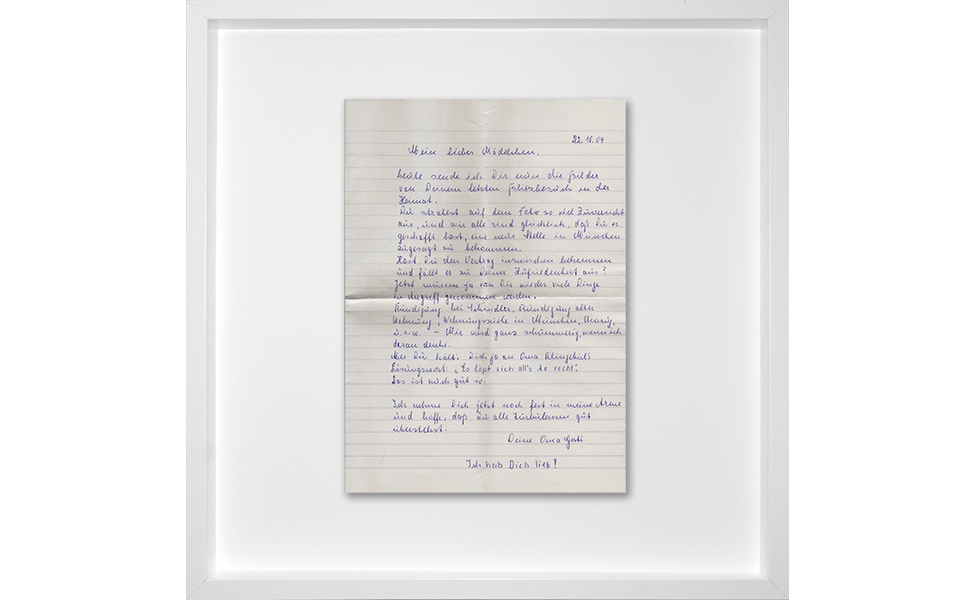 22.10.09
Mein liebes Mädchen,
heute sende ich Dir nun die Bilder
von Deinem letzten Blitzbesuch in der
Heimat.
Du strahlst auf dem Foto so viel Zuversicht
aus, und wir alle sind glücklich, daß Du es
geschafft hast, eine neue Stelle in München
zugesagt zu bekommen.
Hast Du den Vertrag inzwischen bekommen
und fällt er zu Deiner Zufriedenheit aus?
Jetzt müssen ja von Dir wieder viele Dinge
in Angriff genommen werden.
Kündigung bei Schindler, Kündigung alte
Wohnung, Wohnungssuche in München, Umzug,
u.s.w. - Mir wird ganz schummerig, wenn ich
daran denke.
Aber Du hälst Dich ja an Oma
Losungswort: „Es löpt sich all's to recht".
Das ist auch gut so.
Ich nehme Dich jetzt noch fest in meine Arme
und hoffe, daß Du alle Turbulenzen gut
überstehst.
Deine Oma Gerti.
Ich hab Dich lieb!